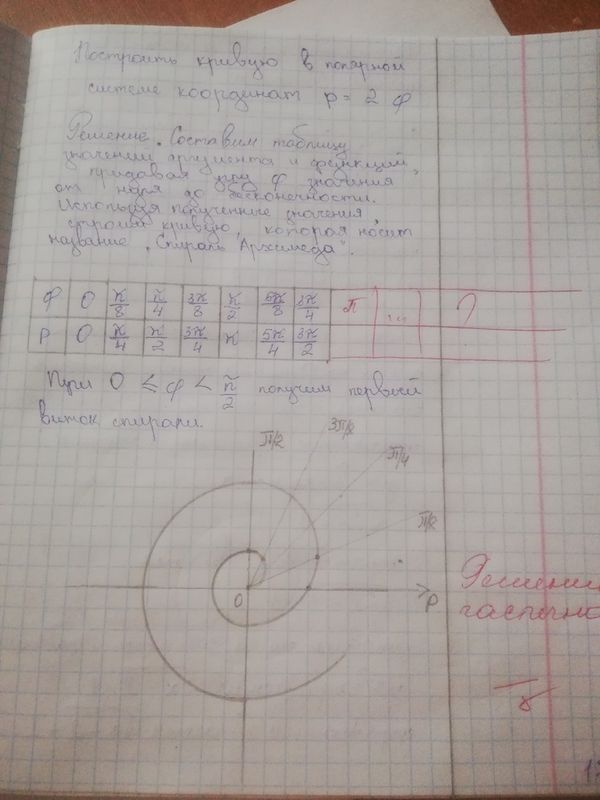 Построить кривую в полярной
системе координат ρ = 2 φ
Решение. Составим таблицу
значений аргумента и функций,
придавая при φ значения
от нуля до бесконечности.
Используя полученные значения,
строим кривую, которая носит
название „Спираль Архимеда".
φ 0 π/8 π/4 3π/8 π/2 5π/8 3π/4 π ... ?
ρ 0 π/4 π/2 3π/4 π 5π/4 3π/2
При 0 ≤ φ < π/2 получим первый
виток спирали.
π/2 3π/8 π/4
π/8
0 ρ
Решени
частично